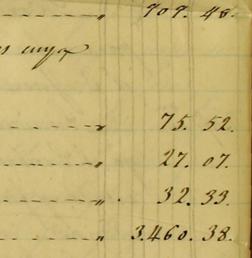 " 709. 48.
" 75. 52.
" 27. 07.
" 32. 33.
" 3.460. 38.